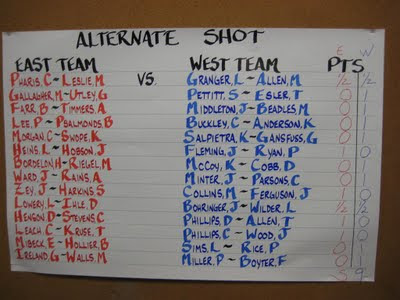 ALTERNATE SHOT
E W
EAST TEAM VS. WEST TEAM PTS
PHARIS, C ~ LESLIE, M GRANGER, L ~ ALLEN, M ½ ½
GALLAGHER, M ~ UTLEY, G PETTITT, S ~ ESLER, T 0 1
FARR, B ~ TIMMERS, A MIDDLETON, J ~ BEADLES, M 0 1
LEE, P ~ PSALMONDS, B BUCKLEY, C ~ ANDERSON, K 0 1
MORGAN, C ~ SWOPE, K SALPIETRA, K ~ GANSFUSS, G 0 1
HEINS, L ~ HOBSON, J FLEMING, J ~ RYAN, P 1 0
BORDELON, H ~ RIEGEL, M MCCOY, K ~ COBB, D 0 1
WARD, J ~ RAINS, A MINTER, J ~ PARSONS, C 0 1
ZEY, J ~ HARKINS, S COLLINS, M ~ FERGUSON, J 1 0
LOWERY, L ~ IHLE, D BOHRINGER, J ~ WILDER, L ½ ½
HENSON, D ~ STEVENS, C PHILLIPS, D ~ ALLEN, T 1 0
LEACH, C ~ KRUSE, T PHILLIPS, C ~ WOOD, J 1 0
MIBECK, E ~ HOLLIER, B SIMS, L ~ RICE, P 0 1
IRELAND, G ~ WALLS, M MILLER, P ~ BOYTER, F 0 1
5 9